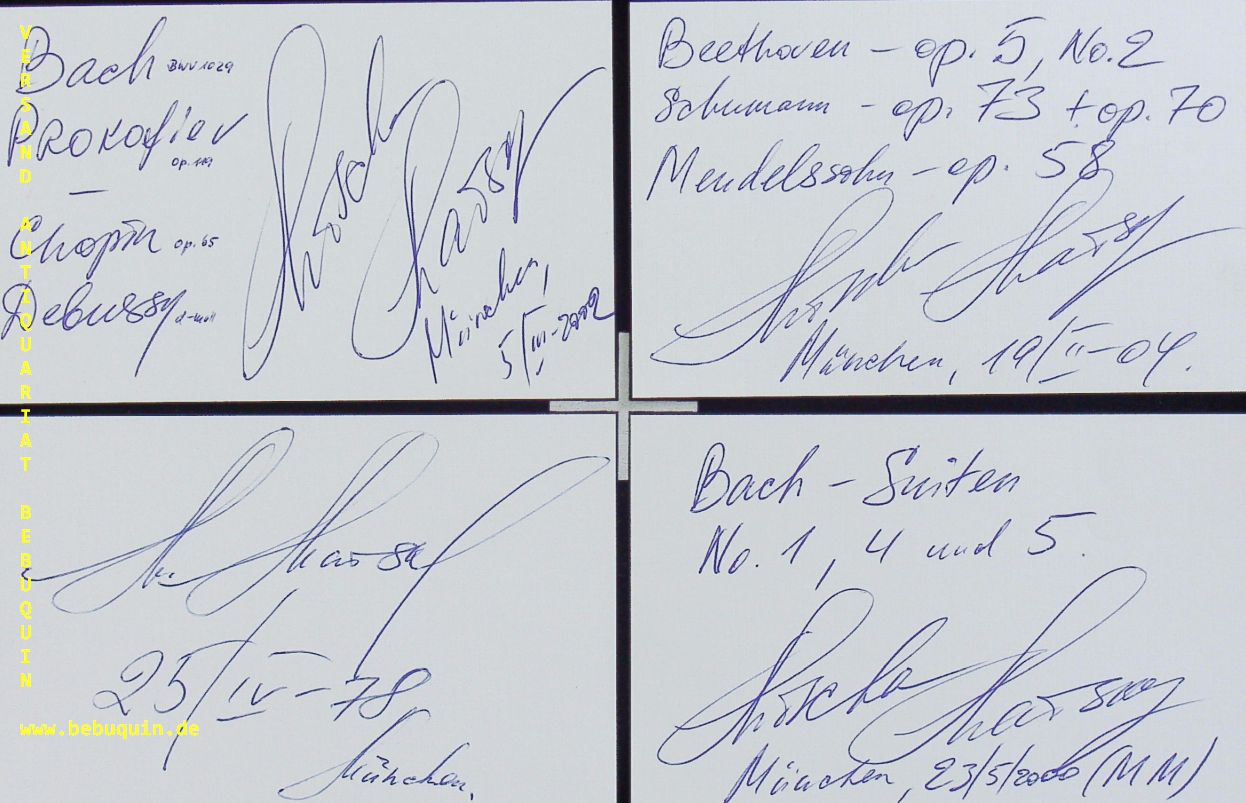 Bach BWV 1029
Prokofiev
op. 119
—
Chopin op. 65
Debussy d-moll
Mischa Maisky
München,
5/III-2002
Beethoven – op. 5, No. 2
Schumann – op. 73 + op. 70
Mendelssohn – op. 58
Mischa Maisky
München, 19/II-04.
Maisky
25/IV-78,
München.
Bach – Suiten
No. 1, 4 und 5.
Mischa Maisky
München, 23/5/2000 (MM)
VERSAND ANTIQUARIAT BEBUQUIN
www.bebuquin.de